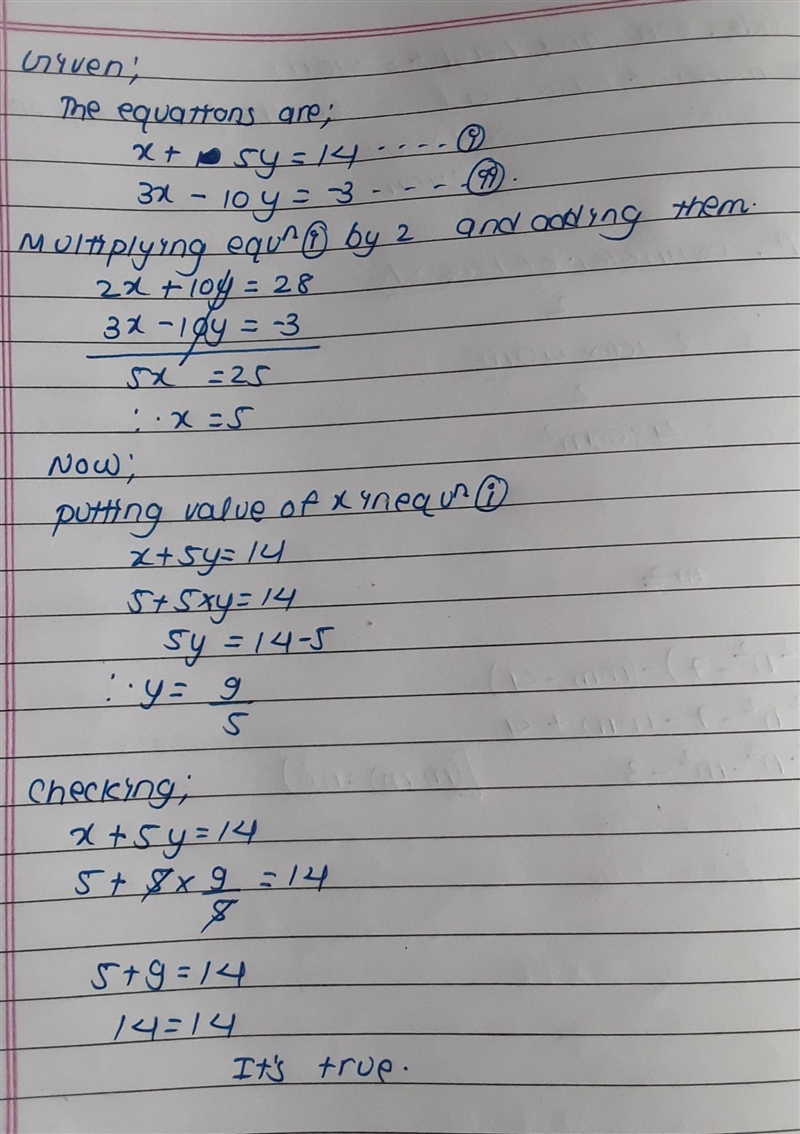 Given;
The equations are;
x + 5y = 14 ---- (i)
3x - 10y = -3 --- (ii).
Multiplying equⁿ (i) by 2 and adding them.
2x + 10y = 28
3x - 10y = -3
5x = 25
∴ x = 5
Now;
putting value of x in equⁿ (i)
x + 5y = 14
5 + 5×y = 14
5y = 14 - 5
∴ y = 9/5
Checking;
x + 5y = 14
5 + 5 × 9/5 = 14
5 + 9 = 14
14 = 14
It's true.